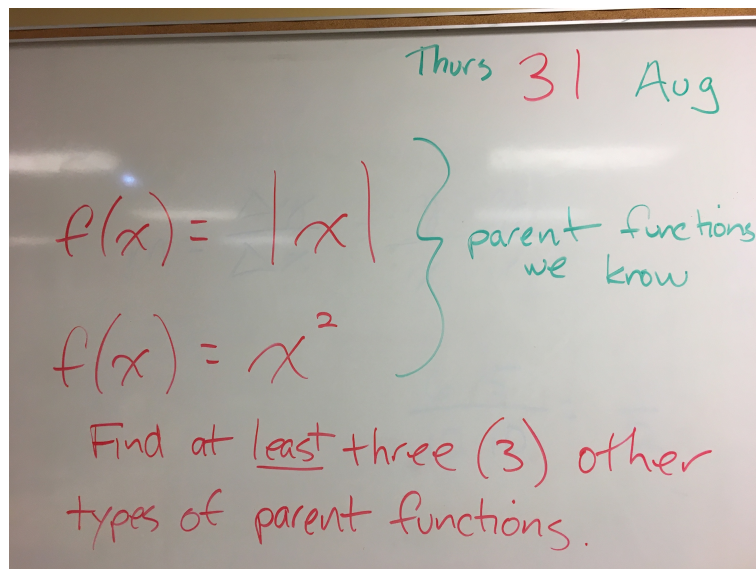 Thurs 31 Aug
f(x) = |x|
parent functions
we know
f(x) = x²
Find at least three (3) other
types of parent functions.